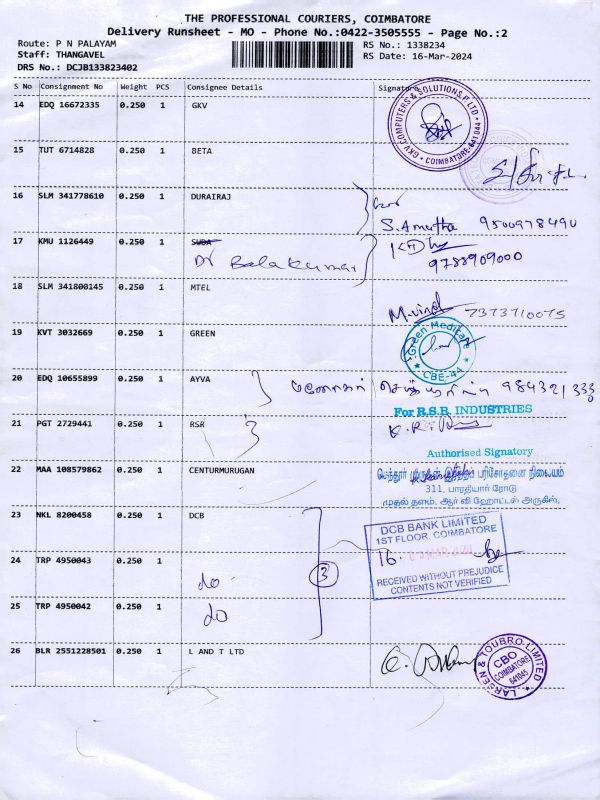 THE PROFESSIONAL COURIERS, COIMBATORE
Delivery Runsheet - MO - Phone No.:0422-3505555 - Page No.:2
Route: P N PALAYAM
RS No.: 1338234
Staff: THANGAVEL
RS Date: 16-Mar-2024
DRS No.: DCJB133823402
S No Consignment No Weight PCS Consignee Details Signature
14 EDQ 16672335 0.250 1 GKV
GKV COMPUTERS & SOLUTIONS P LTD COIMBATORE-641044
15 TUT 6714828 0.250 1 BETA
16 SLM 341778610 0.250 1 DURAIRAJ
S. Amutha 9500978490
17 KMU 1126449 0.250 1 SUDA
Dr Balakumar
9788909000
18 SLM 341800145 0.250 1 MTEL
M.vinoth 7373710075
19 KVT 3032669 0.250 1 GREEN
Green Medicare
CBE-44
20 EDQ 10655899 0.250 1 AYVA
மனோகர் 984321333
For R.S.R. INDUSTRIES
21 PGT 2729441 0.250 1 RSR
Authorised Signatory
22 MAA 108579862 0.250 1 CENTURMURUGAN
செந்தூர் முருகன் இரத்த பரிசோதனை நிலையம்
311, பாரதியார் ரோடு
முதல் தளம், ஆர் வி ஹோட்டல் அருகில்,
23 NKL 8200458 0.250 1 DCB
DCB BANK LIMITED
1ST FLOOR, COIMBATORE
16
RECEIVED WITHOUT PREJUDICE
CONTENTS NOT VERIFIED
24 TRP 4950043 0.250 1 do
3
25 TRP 4950042 0.250 1 do
26 BLR 2551228501 0.250 1 L AND T LTD
LARSEN & TOUBRO LIMITED
CBO
COIMBATORE
641045